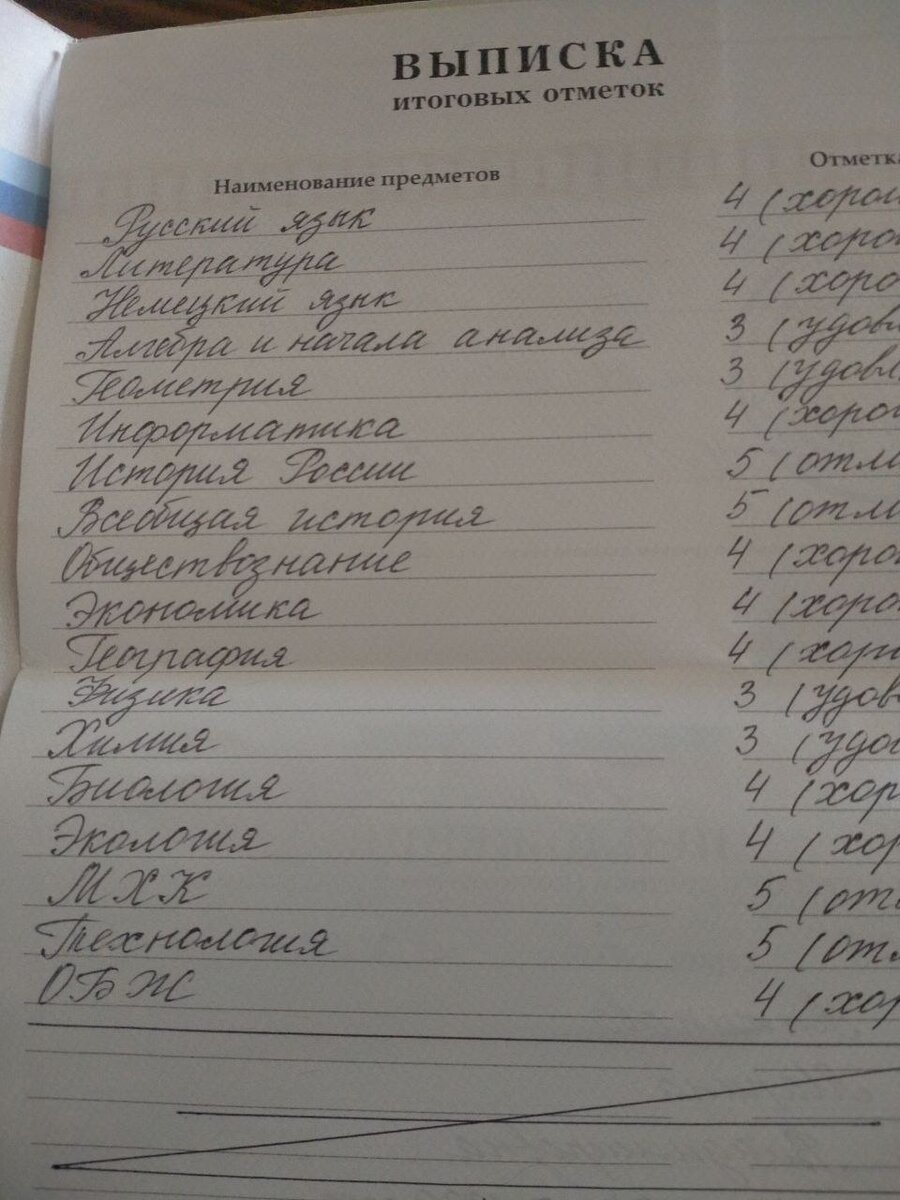 ВЫПИСКА
итоговых отметок
Наименование предметов Отметка
Русский язык 4 (хорош
Литература 4 (хорош
Немецкий язык 4 (хоро
Алгебра и начала анализа 3 (удовл
Геометрия 3 (удовл
Информатика 4 (хорош
История России 5 (отли
Всеобщая история 5 (отли
Обществознание 4 (хорош
Экономика 4 (хорош
География 4 (хоро
Физика 3 (удовл
Химия 3 (удов
Биология 4 (хор
Экология 4 (хор
МХК 5 (отл
Технология 5 (отл
ОБЖ 4 (хор